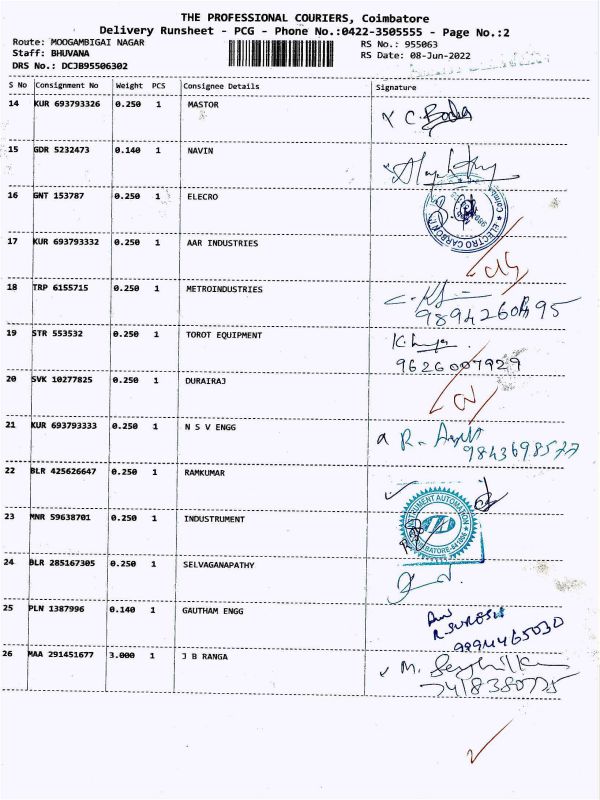 THE PROFESSIONAL COURIERS, Coimbatore
Delivery Runsheet - PCG - Phone No.:0422-3505555 - Page No.:2
Route: MOOGAMBIGAI NAGAR RS No.: 955063
Staff: BHUVANA RS Date: 08-Jun-2022
DRS No.: DCJB95506302
S No Consignment No Weight PCS Consignee Details Signature
14 KUR 693793326 0.250 1 MASTOR
15 GDR 5232473 0.140 1 NAVIN
16 GNT 153787 0.250 1 ELECRO
ELECTRO CARBON
17 KUR 693793332 0.250 1 AAR INDUSTRIES
18 TRP 6155715 0.250 1 METROINDUSTRIES
19 STR 553532 0.250 1 TOROT EQUIPMENT
9626007929
20 SVK 10277825 0.250 1 DURAIRAJ
21 KUR 693793333 0.250 1 N S V ENGG
9843698577
22 BLR 425626647 0.250 1 RAMKUMAR
23 MNR 59638701 0.250 1 INDUSTRUMENT
INSTRUMENT AUTOMATION
24 BLR 285167305 0.250 1 SELVAGANAPATHY
25 PLN 1387996 0.140 1 GAUTHAM ENGG
R.SURESH
9894465030
26 MAA 291451677 3.000 1 J B RANGA
7418380775